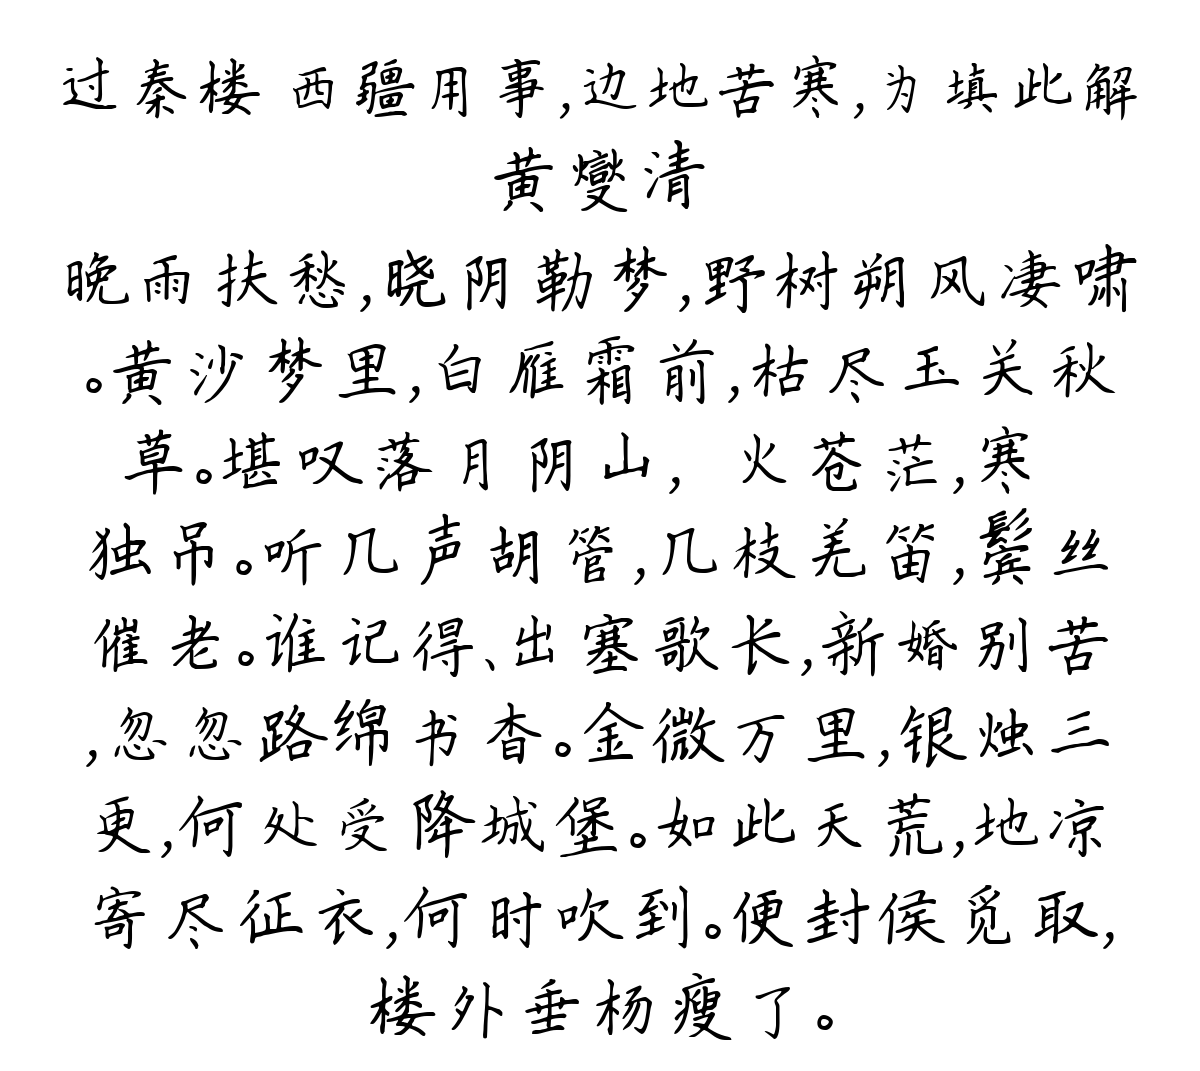 过秦楼 西疆用事,边地苦寒,为填此解
黄燮清
晚雨扶愁,晓阴勒梦,野树朔风凄啸
。黄沙梦里,白雁霜前,枯尽玉关秋
草。堪叹落月阴山, 火苍茫,寒
独吊。听几声胡管,几枝羌笛,鬓丝
催老。谁记得、出塞歌长,新婚别苦
,忽忽路绵书杳。金微万里,银烛三
更,何处受降城堡。如此天荒,地凉
寄尽征衣,何时吹到。便封侯觅取,
楼外垂杨瘦了。